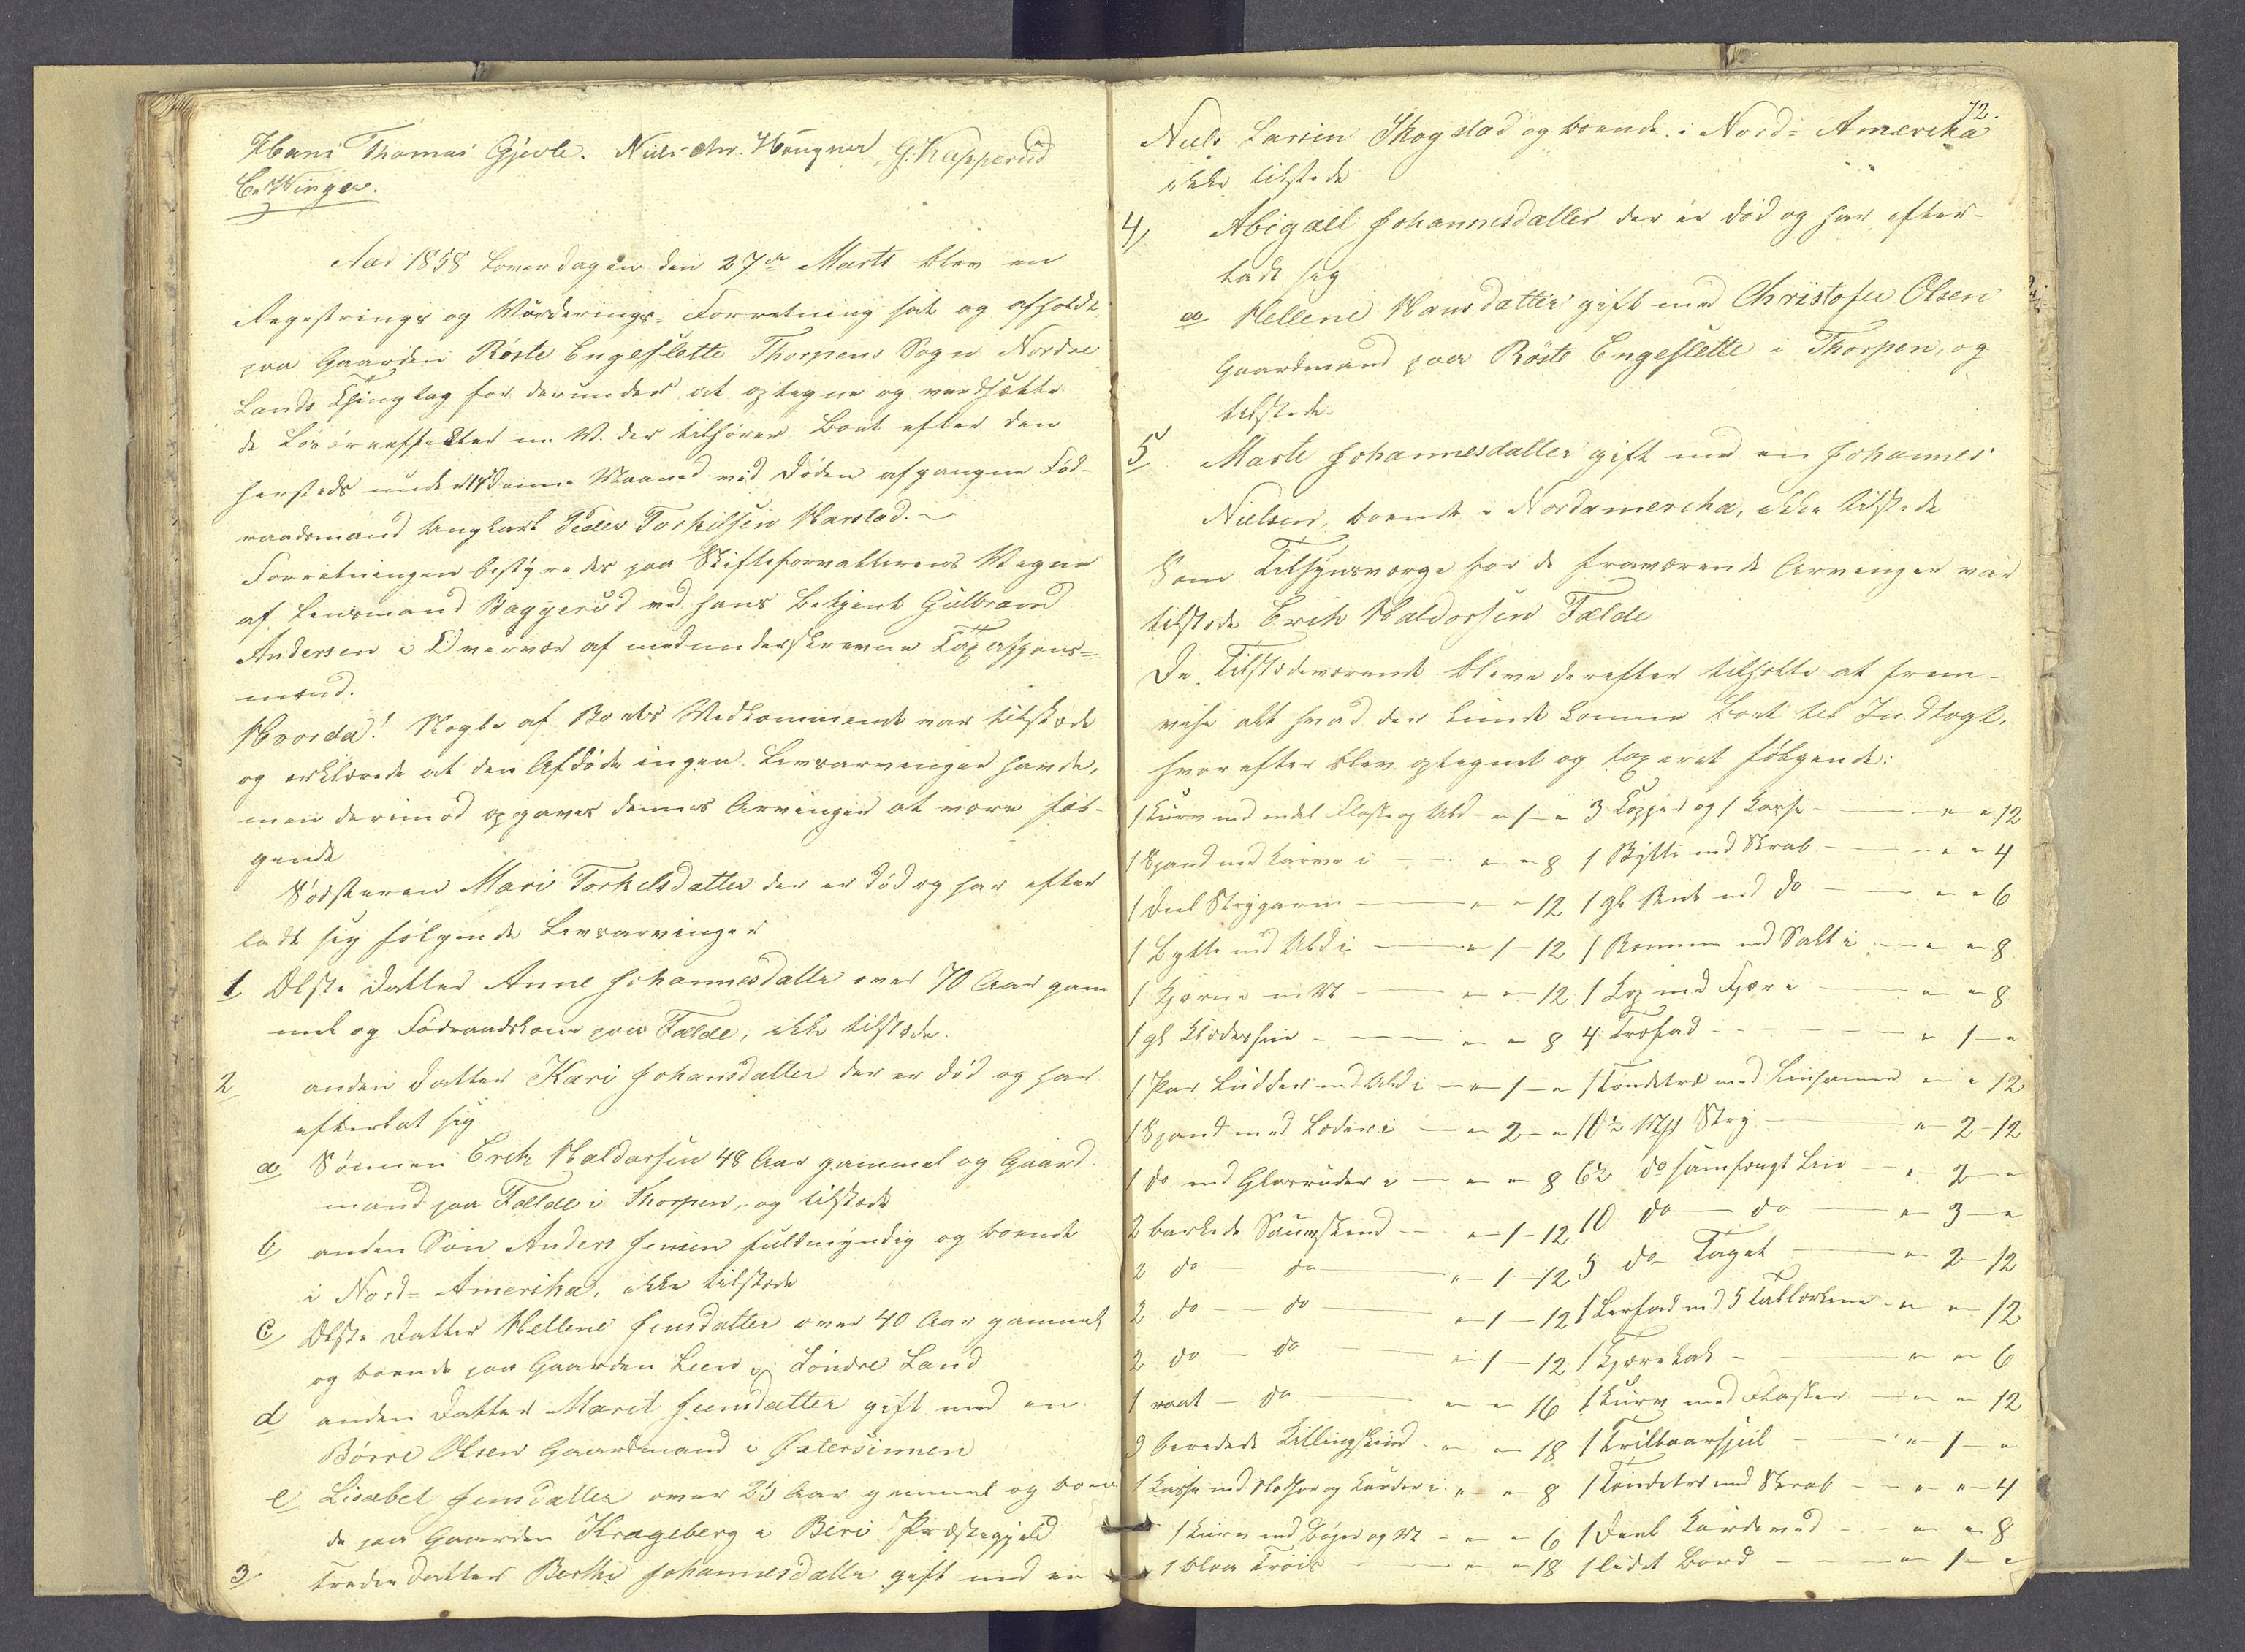 Hans Thomas Gjevle. Niels Chr. Hougner G. Kapperud
C. Winger.
Aar 1858 Løverdagen den 27de Marts blev en
Regestrings og Vurderings-Forretning sat og afholdt
paa Gaarden Röste Engeslette Thorpens Sogn Nordre
Lands Thinglag for derunder at optegne og værdsætte
de Løsøreeffecter m. V. der tilhører Boet efter den
hensteds under 14 denne Maaned ved Døden afgangne Fød-
raadsmand Ungkarl Peder Torkelsen Harstad. ~
Forretningen bestyredes paa Skifteforvalterens Vegne
af Lensmand Baggerud ved hans Betjent Gulbrand
Andersen i Overvær af medunderskrevne Taxasjons-
mænd.
Hvorda! Nogle af Boets Vedkommende var tilstæde
og erklærede at den Afdøde ingen Livsarvinger havde,
men derimod opgaves dennes Arvinger at være føl-
gende
Södsteren Mari Torkelsdatter der er Död og har efter
ladt sig følgende Livsarvinger
1 Ælste Datter Anne Johannesdatter over 70 Aar gam
mel og Födraadskone paa Fælde, ikke tilstæde.
2 anden Datter Kari Johansdatter der er död og har
efterlat sig
a Sönnen Erik Haldorsen 48 Aar gammel og Gaard-
mand paa Fælde i Thorpen, og tilstæde
b anden Sön Anders Jensen fuldmyndig og boende
i Nord-Amerika, ikke tilstæde
c Ælste Datter Hellene Jensdatter over 40 Aar gammel
og boende paa Gaarden Lien i Söndre Land
d anden Datter Marit Jensdatter gift med en
Börre Olsen Gaardmand i Østersinnen
e Lisabet Jensdatter over 25 Aar gammel og boen
de paa Gaarden Krageberg i Biri Præstegjeld
3 tredie Datter Berthe Johannesdatter gift med en
72.
Niels Larsen Skogstad og boende i Nord-Amerika
ikke tilstede
4 Abigael Johannesdatter der er död og har efter-
ladt sig
a Hellene Hansdatter gift med Christofer Olsen
Gaardmand paa Röste Engeslette i Thorpen, og
tilstede.
5 Marte Johannesdatter gift med en Johannes
Nielsen, boende i Nordamerika, ikke tilstede
Som Tilsynsværge for de fraværende Arvinger var
tilstede Erik Haldorsen Fælde
De Tilstedeværende bleve derefter tilholte at frem-
vise alt hvad der kunde komme Boet til Indtægt,
hvorefter blev optegnet og taxeret følgende:
1 Kurv med endel Flasker og Uld - " 1 - " 3 Kopper og 1 Kasse - " " 12
1 Spand med Karve i - " " 8 1 Bytte med Skrab - " " 4
1 Deel Strygarn - " " 12 1 gl. med do - " " 6
1 Bytte med Uld i - " 1 - 12 1 Bomme med Salt i - " " 8
1 Kjerne m V - " " 12 1 Kop med Fjær i - " " 8
1 gl Klædeshue - " " 8 4 Træfad - " 1 - "
1 Par Ludder med Uld i - " 1 - " 1 Töndetræ med Linsæmne " " 12
1 Spand med Læder i - " 2 - " 10½ Mk Stry - " 2 - 12
1 do med Glasruder i - " " 8 6½ do sämfengt Lin - " 2 - "
2 barkede Saueskind - " 1 - 12 10 do do - " 3 - "
2 do - do - " 1 - 12 5 do Taget - " 2 - 12
2 do - do - " 1 - 12 1 Leerfad med 5 Tallerkener - " " 12
2 do - do - " 1 - 12 1 Tjærekak - " " 6
1 raat - do - " " 16 1 Kurv med Flasker - " " 12
3 beredede Killingskind - " " 18 1 - " 1 - "
1 Kasse med og Karder i " " 8 1 Töndetræ med Skrab - " " 4
1 Kurv med Bøger og V - " " 6 1 Deel - " " 8
1 blaa Tröie - " " 18 1 lidet Bord - " 1 - "